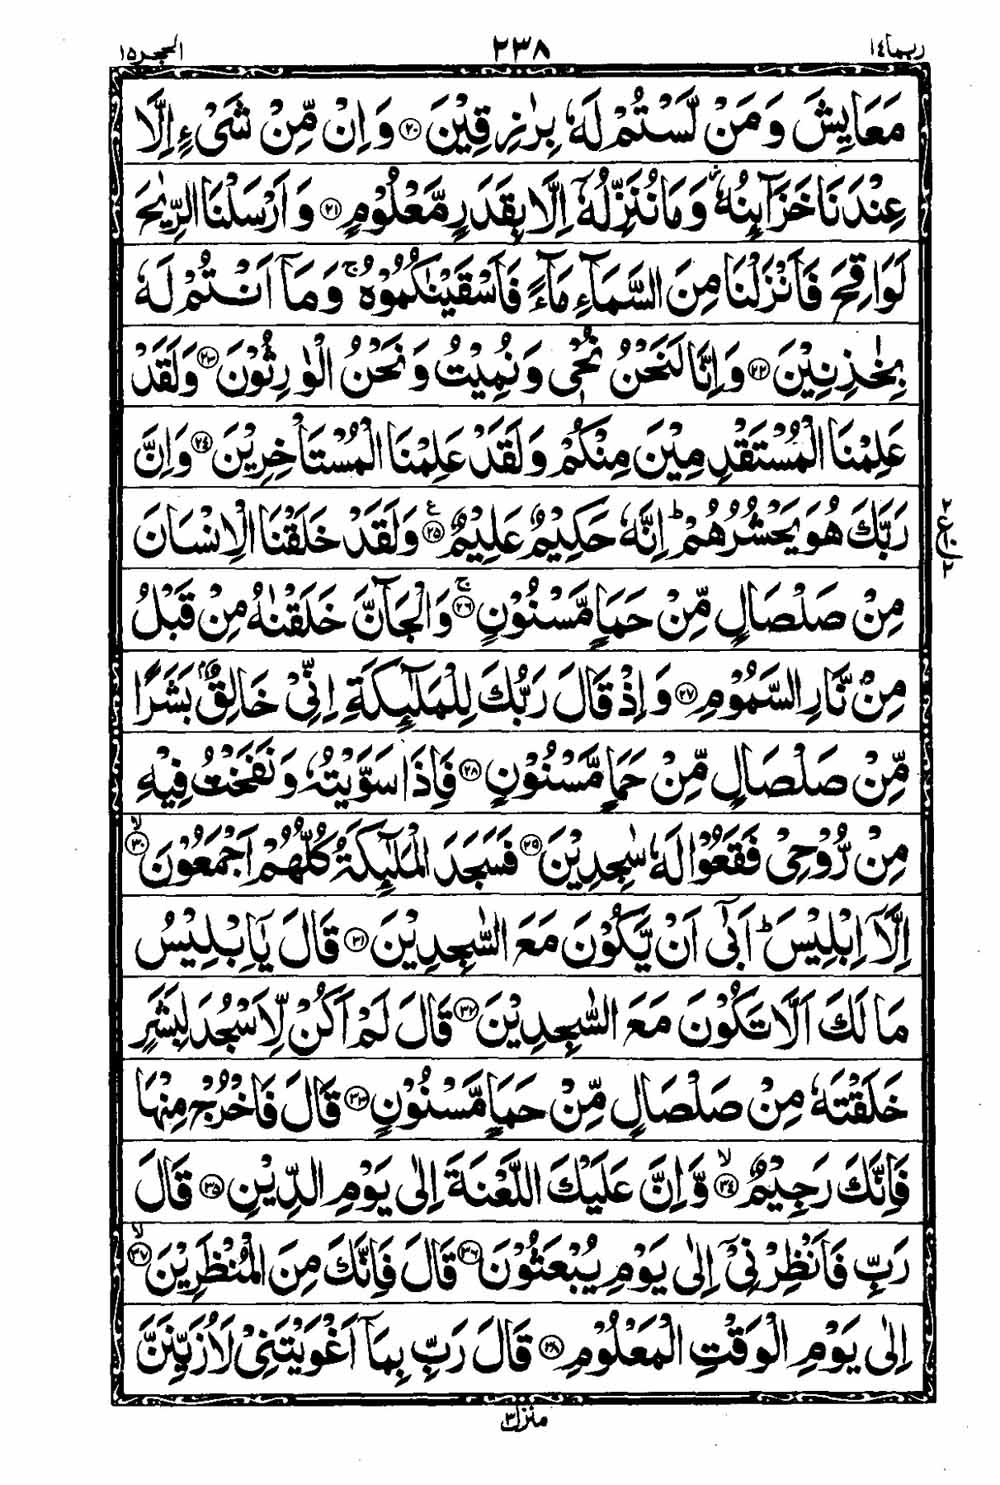 ربما ١٤
٢٣٨
الحجر ١٥
مَعَايِشَ وَمَنْ لَّسْتُمْ لَهٗ بِرٰزِقِيْنَ ﴿٢٠﴾ وَاِنْ مِّنْ شَيْءٍ اِلَّا
عِنْدَنَا خَزَآئِنُهٗ ز وَمَا نُنَزِّلُهٗٓ اِلَّا بِقَدَرٍ مَّعْلُوْمٍ ﴿٢١﴾ وَاَرْسَلْنَا الرِّيٰحَ
لَوَاقِحَ فَاَنْزَلْنَا مِنَ السَّمَآءِ مَآءً فَاَسْقَيْنٰكُمُوْهُ ۚ وَمَآ اَنْتُمْ لَهٗ
بِخٰزِنِيْنَ ﴿٢٢﴾ وَاِنَّا لَنَحْنُ نُحْيٖ وَنُمِيْتُ وَنَحْنُ الْوٰرِثُوْنَ ﴿٢٣﴾ وَلَقَدْ
عَلِمْنَا الْمُسْتَقْدِمِيْنَ مِنْكُمْ وَلَقَدْ عَلِمْنَا الْمُسْتَاْخِرِيْنَ ﴿٢٤﴾ وَاِنَّ
رَبَّكَ هُوَ يَحْشُرُهُمْ ؕ اِنَّهٗ حَكِيْمٌ عَلِيْمٌ ﴿٢٥﴾ ع وَلَقَدْ خَلَقْنَا الْاِنْسَانَ
٢ ع ٢
مِنْ صَلْصَالٍ مِّنْ حَمَاٍ مَّسْنُوْنٍ ۚ ﴿٢٦﴾ وَالْجَآنَّ خَلَقْنٰهُ مِنْ قَبْلُ
مِنْ نَّارِ السَّمُوْمِ ﴿٢٧﴾ وَاِذْ قَالَ رَبُّكَ لِلْمَلٰٓئِكَةِ اِنِّيْ خَالِقٌۢ بَشَرًا
مِّنْ صَلْصَالٍ مِّنْ حَمَاٍ مَّسْنُوْنٍ ﴿٢٨﴾ فَاِذَا سَوَّيْتُهٗ وَنَفَخْتُ فِيْهِ
مِنْ رُّوْحِيْ فَقَعُوْا لَهٗ سٰجِدِيْنَ ﴿٢٩﴾ فَسَجَدَ الْمَلٰٓئِكَةُ كُلُّهُمْ اَجْمَعُوْنَ ۙ ﴿٣٠﴾
اِلَّآ اِبْلِيْسَ ؕ اَبٰٓى اَنْ يَّكُوْنَ مَعَ السّٰجِدِيْنَ ﴿٣١﴾ قَالَ يٰٓاِبْلِيْسُ
مَا لَكَ اَلَّا تَكُوْنَ مَعَ السّٰجِدِيْنَ ﴿٣٢﴾ قَالَ لَمْ اَكُنْ لِّاَسْجُدَ لِبَشَرٍ
خَلَقْتَهٗ مِنْ صَلْصَالٍ مِّنْ حَمَاٍ مَّسْنُوْنٍ ﴿٣٣﴾ قَالَ فَاخْرُجْ مِنْهَا
فَاِنَّكَ رَجِيْمٌ ۙ ﴿٣٤﴾ وَّاِنَّ عَلَيْكَ اللَّعْنَةَ اِلٰى يَوْمِ الدِّيْنِ ﴿٣٥﴾ قَالَ
رَبِّ فَاَنْظِرْنِيْٓ اِلٰى يَوْمِ يُبْعَثُوْنَ ﴿٣٦﴾ قَالَ فَاِنَّكَ مِنَ الْمُنْظَرِيْنَ ۙ ﴿٣٧﴾
اِلٰى يَوْمِ الْوَقْتِ الْمَعْلُوْمِ ﴿٣٨﴾ قَالَ رَبِّ بِمَآ اَغْوَيْتَنِيْ لَاُزَيِّنَنَّ
منزل ٣